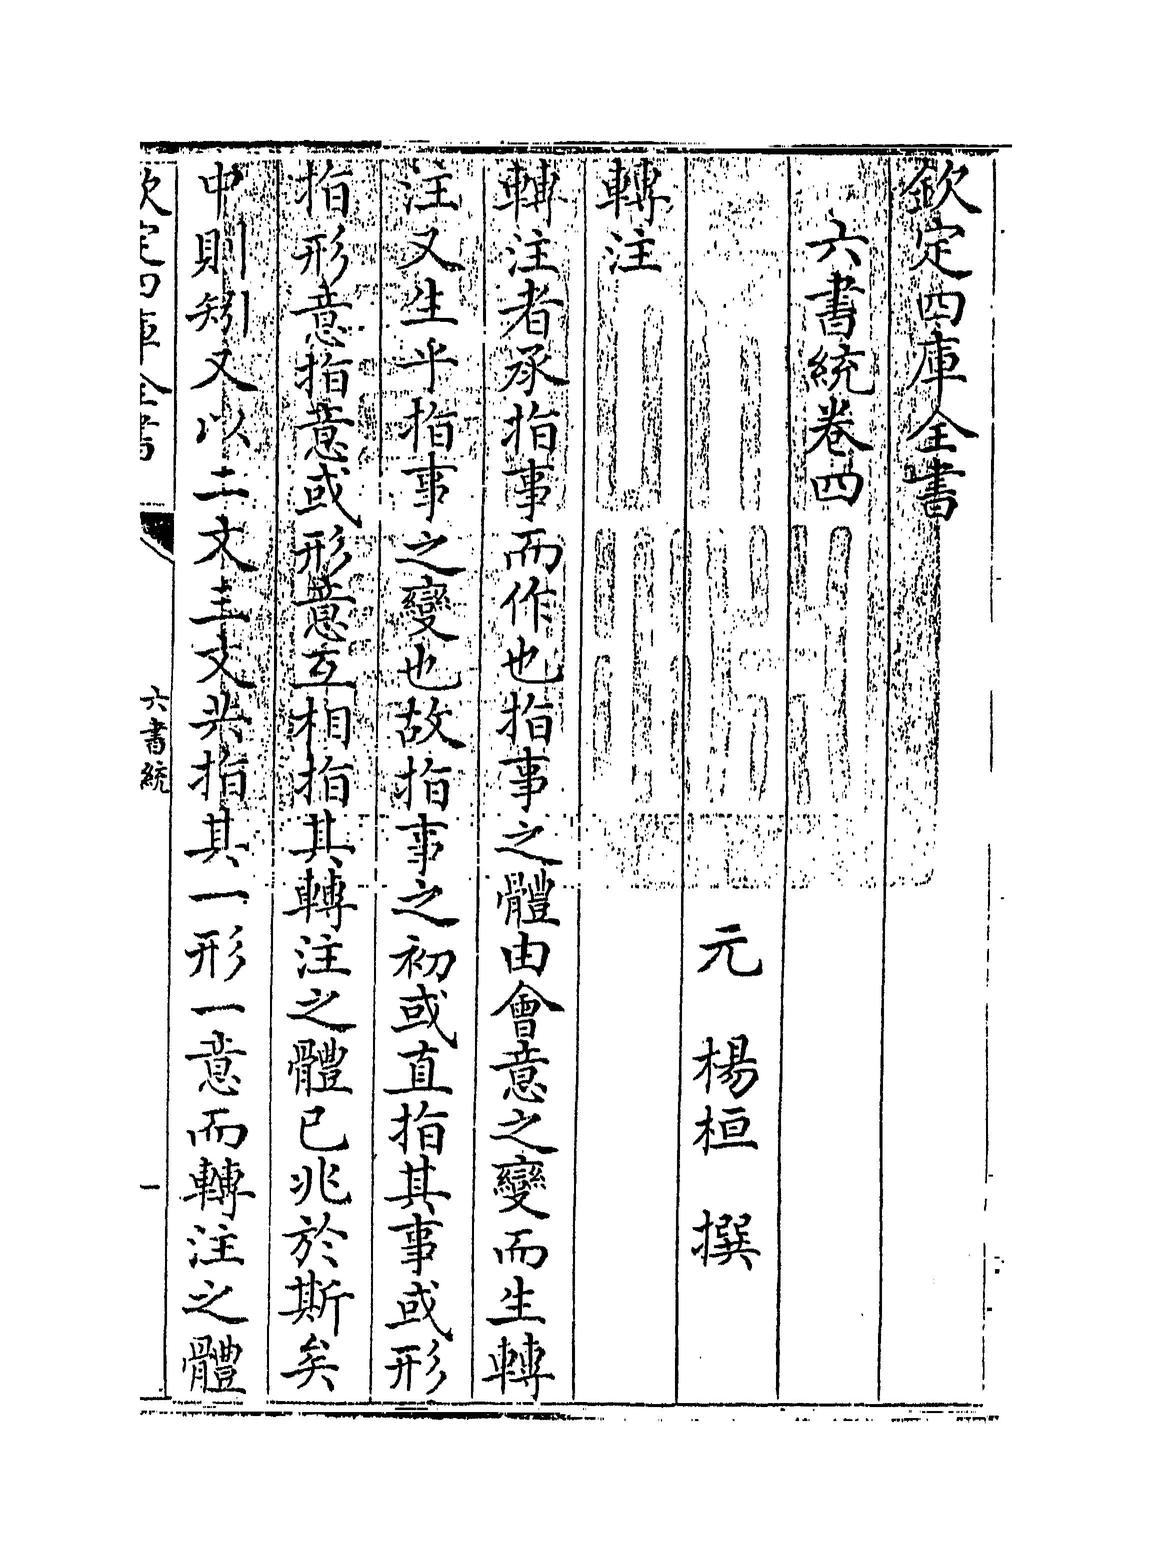 欽定四庫全書
六書統卷四
元 楊桓 撰
轉注
轉注者承指事而作也指事之體由會意之變而生轉
注又生乎指事之變也故指事之初或直指其事或形
指形意指意或形意互相指其轉注之體已兆於斯矣
中則矧又以二文三文共指其一形一意而轉注之體
欽定四庫全書 六書統 一